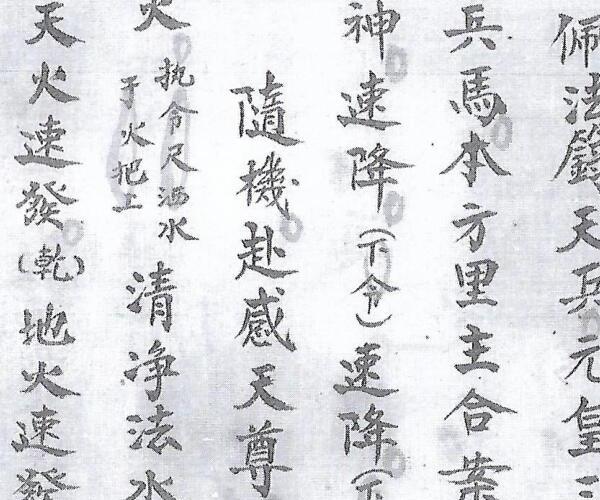 佩法籙天兵元皇
兵馬本方里主合案
神速降(下令)速降(下
隨機赴感天尊
火执令尺洒水于火把上清净法水
天火速發(乾)地火速發